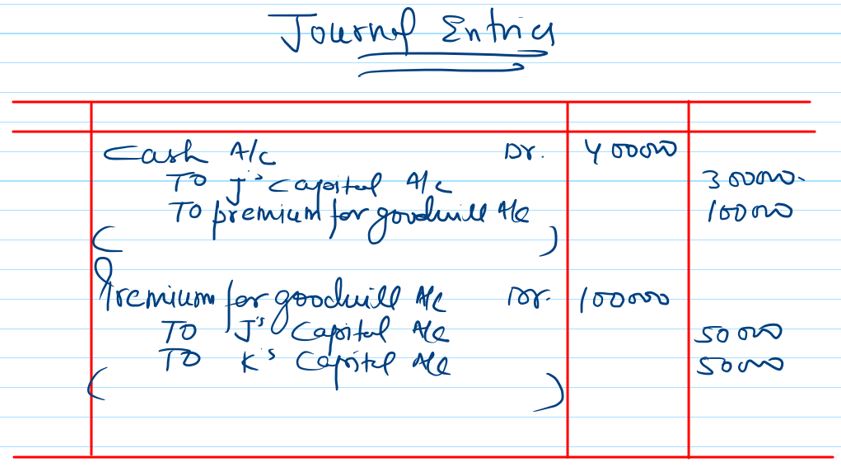 Journal Entries
Cash A/c Dr. 400000
To J's capital A/c 300000.
To premium for goodwill A/c 100000
( )
Premium for goodwill A/c Dr. 100000
To J's Capital A/c 50000
To K's Capital A/c 50000
( )